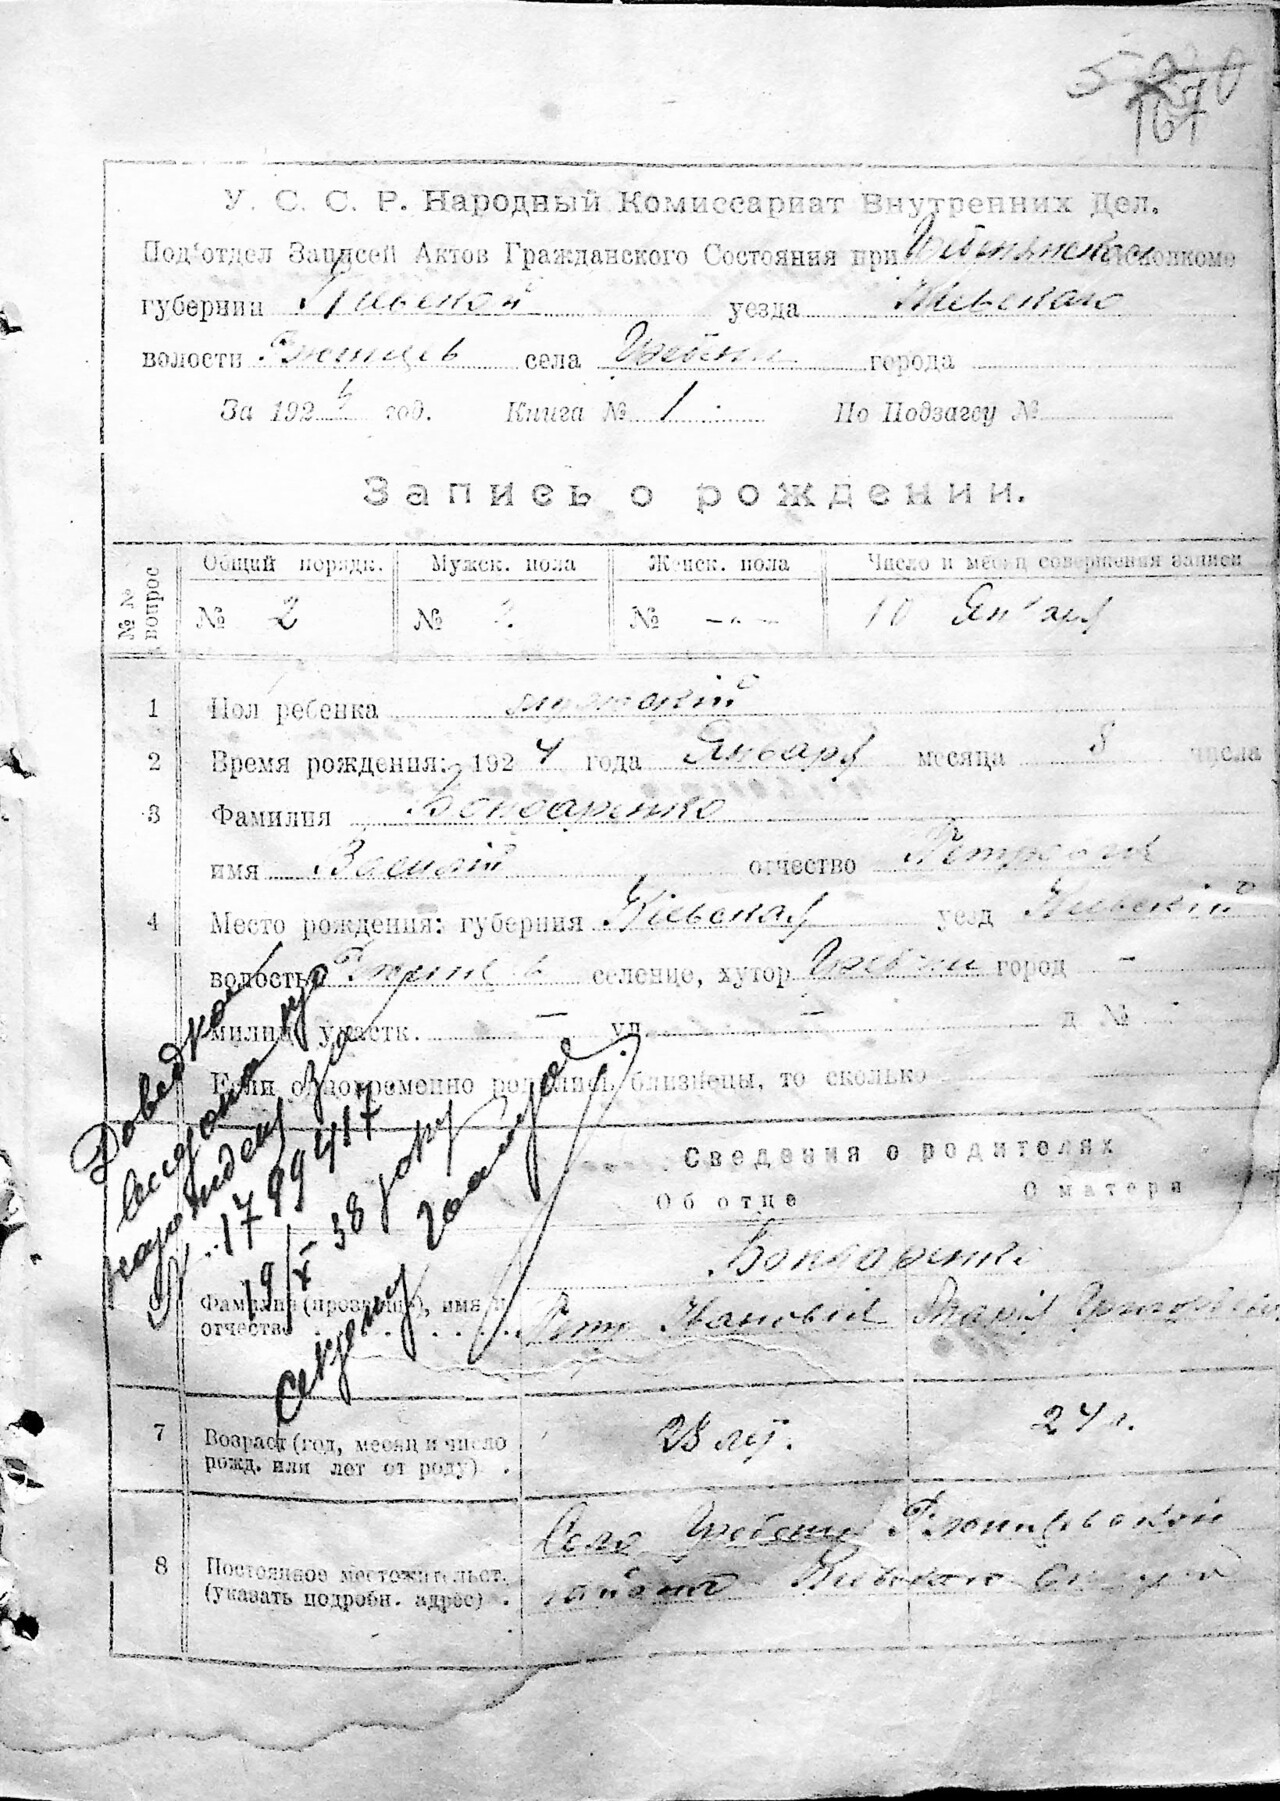 167
У. С. С. Р. Народный Комиссариат Внутренних Дел.
Под'отдел Записей Актов Гражданского Состояния при исполкоме
губернии Киевской уезда Киевскаго
волости Ржищев села Гребени города
За 1924 год. Книга № 1. По Подзагсу №
Запись о рождении.
№№ вопрос
Общий порядк. Мужск. пола Женск. пола Число и месяц совершения записи
№ 2 № 2 № -"- 10 Января
1 Пол ребенка мужский
2 Время рождения: 1924 года Января месяца 8 числа
3 Фамилия Бондаренко
имя Василий отчество Петрович
4 Место рождения: губерния Кіевская уезд Киевскій
волость Ржищев селение, хутор Гребени город -
милиц. участк. - ул. - д №
Если одновременно родились близнецы, то сколько
Сведения о родителях
Об отце О матери
Бондаренко
Фамилия (прозвище), имя и Петр Иванович Мария Григорьевна
отчество
7 Возраст (год, месяц и число 28 лет. 24 г.
рожд. или лет от роду) .
8 Постоянное местожительст. Село Гребени Ржищевской
(указать подробн. адрес) . района Киевскаго округа
Довідка
народження за
№ 1799417
19/X 38 року